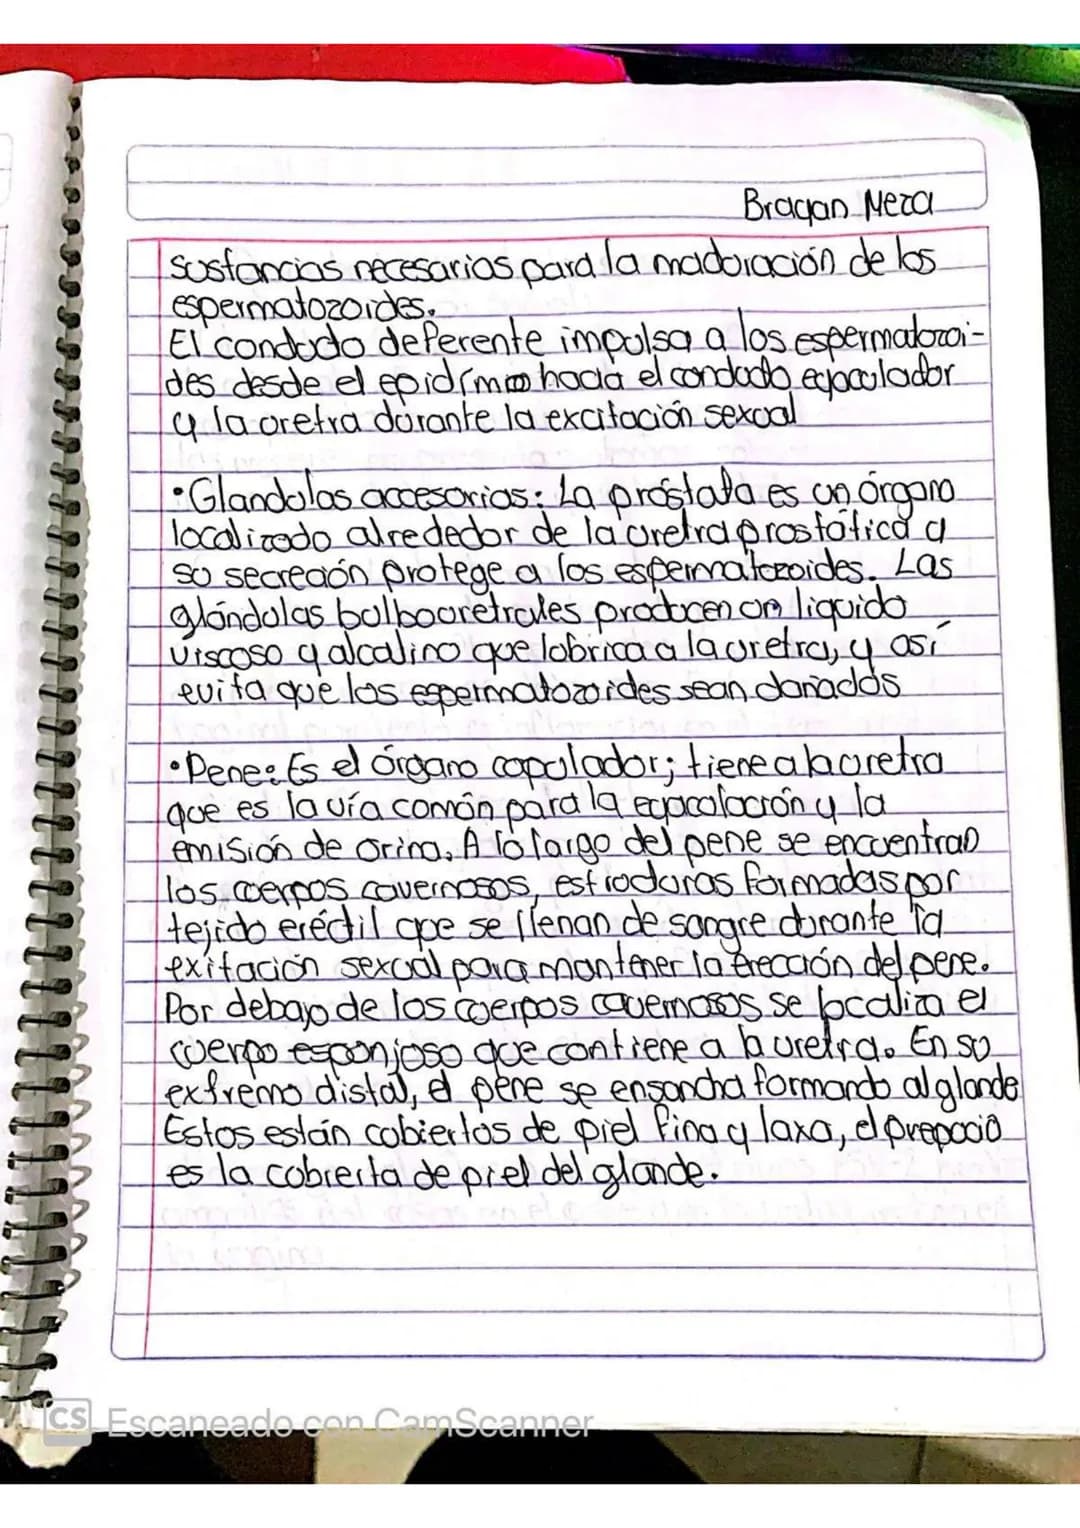 Brayan Meza
sustancias necesarias para la maduración de los
espermatozoides.
El conducto deferente impulsa a los espermatozoi-
des desde el epidímio hacia el conducto eyaculador
y la uretra durante la excitación sexual
• Glandulas accesorias: La próstata es un órgano
localizado alrededor de la uretra prostática y
su secreción protege a los espermatozoides. Las
glándulas bulbouretrales producen un liquido
viscoso y alcalino que lubrica a la uretra, y así
evita que los espermatozoides sean dañados
• Pene: Es el órgano copulador; tiene a la uretra
que es la vía común para la eyaculación y la
emisión de orina. A lo largo del pene se encuentran
los cuerpos cavernosos, estructuras formadas por
tejido eréctil que se llenan de sangre durante la
exitación sexual para mantener la erección del pene.
Por debajo de los cuerpos cavernosos se localiza el
cuerpo esponjoso que contiene a la uretra. En su
extremo distal, el pene se ensancha formando al glande
Estos están cubiertos de piel fina y laxa, el prepucio
es la cubierta de piel del glande.
CS Escaneado con CamScanner